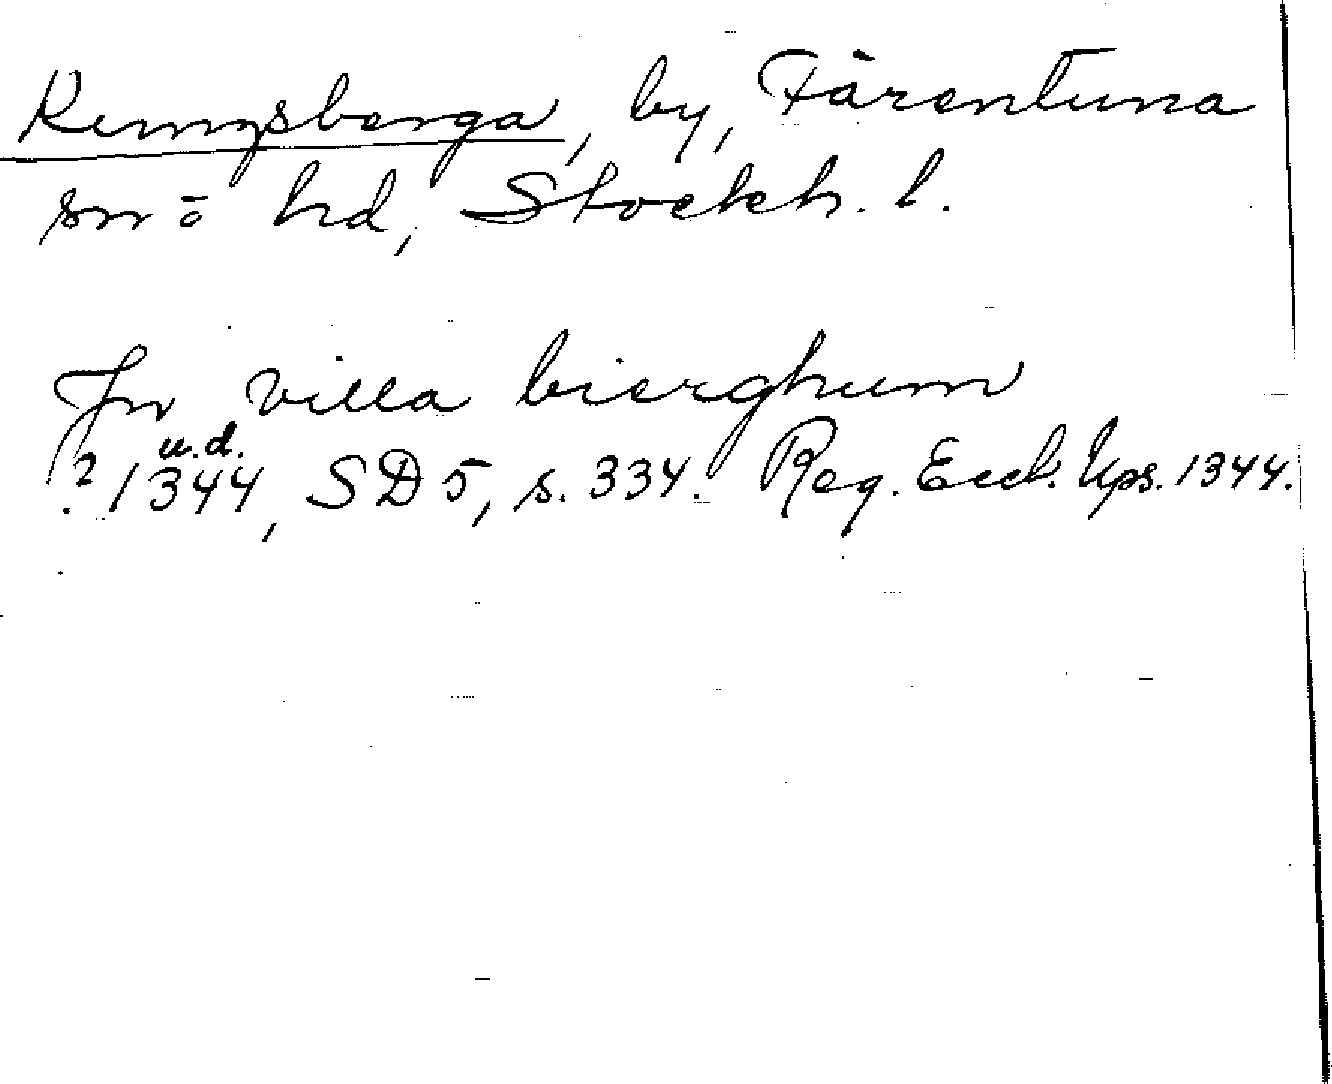 Kungsberga, by, Färentuna
sn o hd, Stockh. l.
In villa bierghum
u.d.
? 1344, SD 5, s. 334. Reg. Eccl. Ups. 1344.